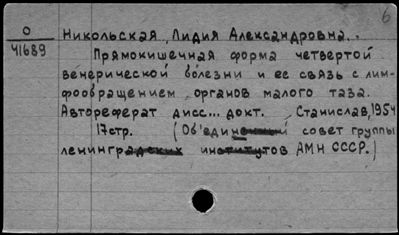 6
О
41689
Никольская, Лидия Александровна.
Прямокишечная форма четвертой
венерической болезни и ее связь с лим-
фообращением органов малого таза.
Автореферат дисс... докт. Станислав, 1954
17стр. (Об'единенный совет группы
ленинградских институтов АМН СССР.)